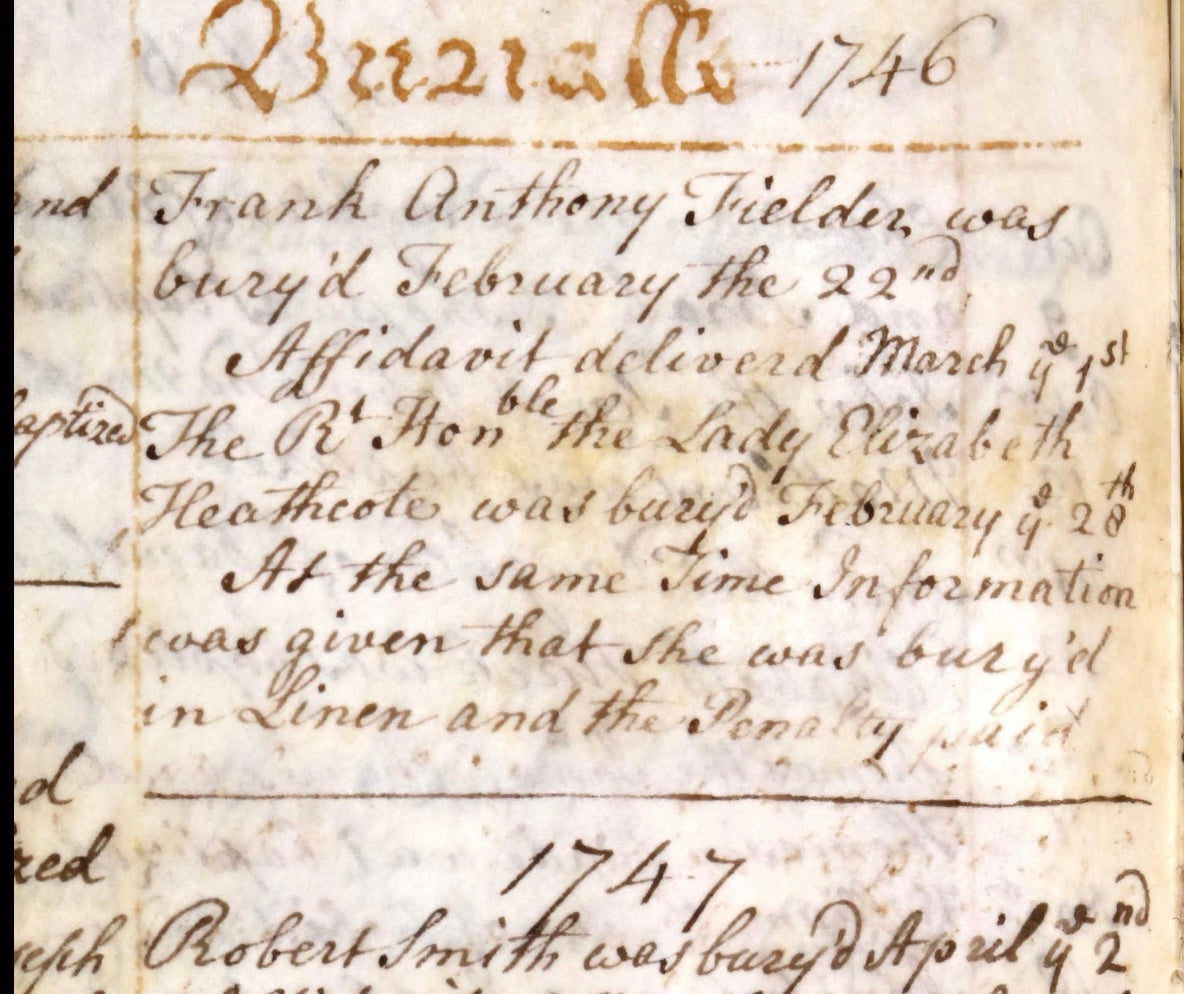 Burialls 1746
and Frank Anthony Fielder was
bury'd February the 22nd
Affidavit deliverd March ye 1st
aptized The Rt Honble the Lady Elizabeth
Heathcote was bury'd February ye 28th
At the same Time Information
was given that she was bury'd
in Linen and the Penalty paid
d
zed 1747
seph Robert Smith was bury'd April ye 2nd